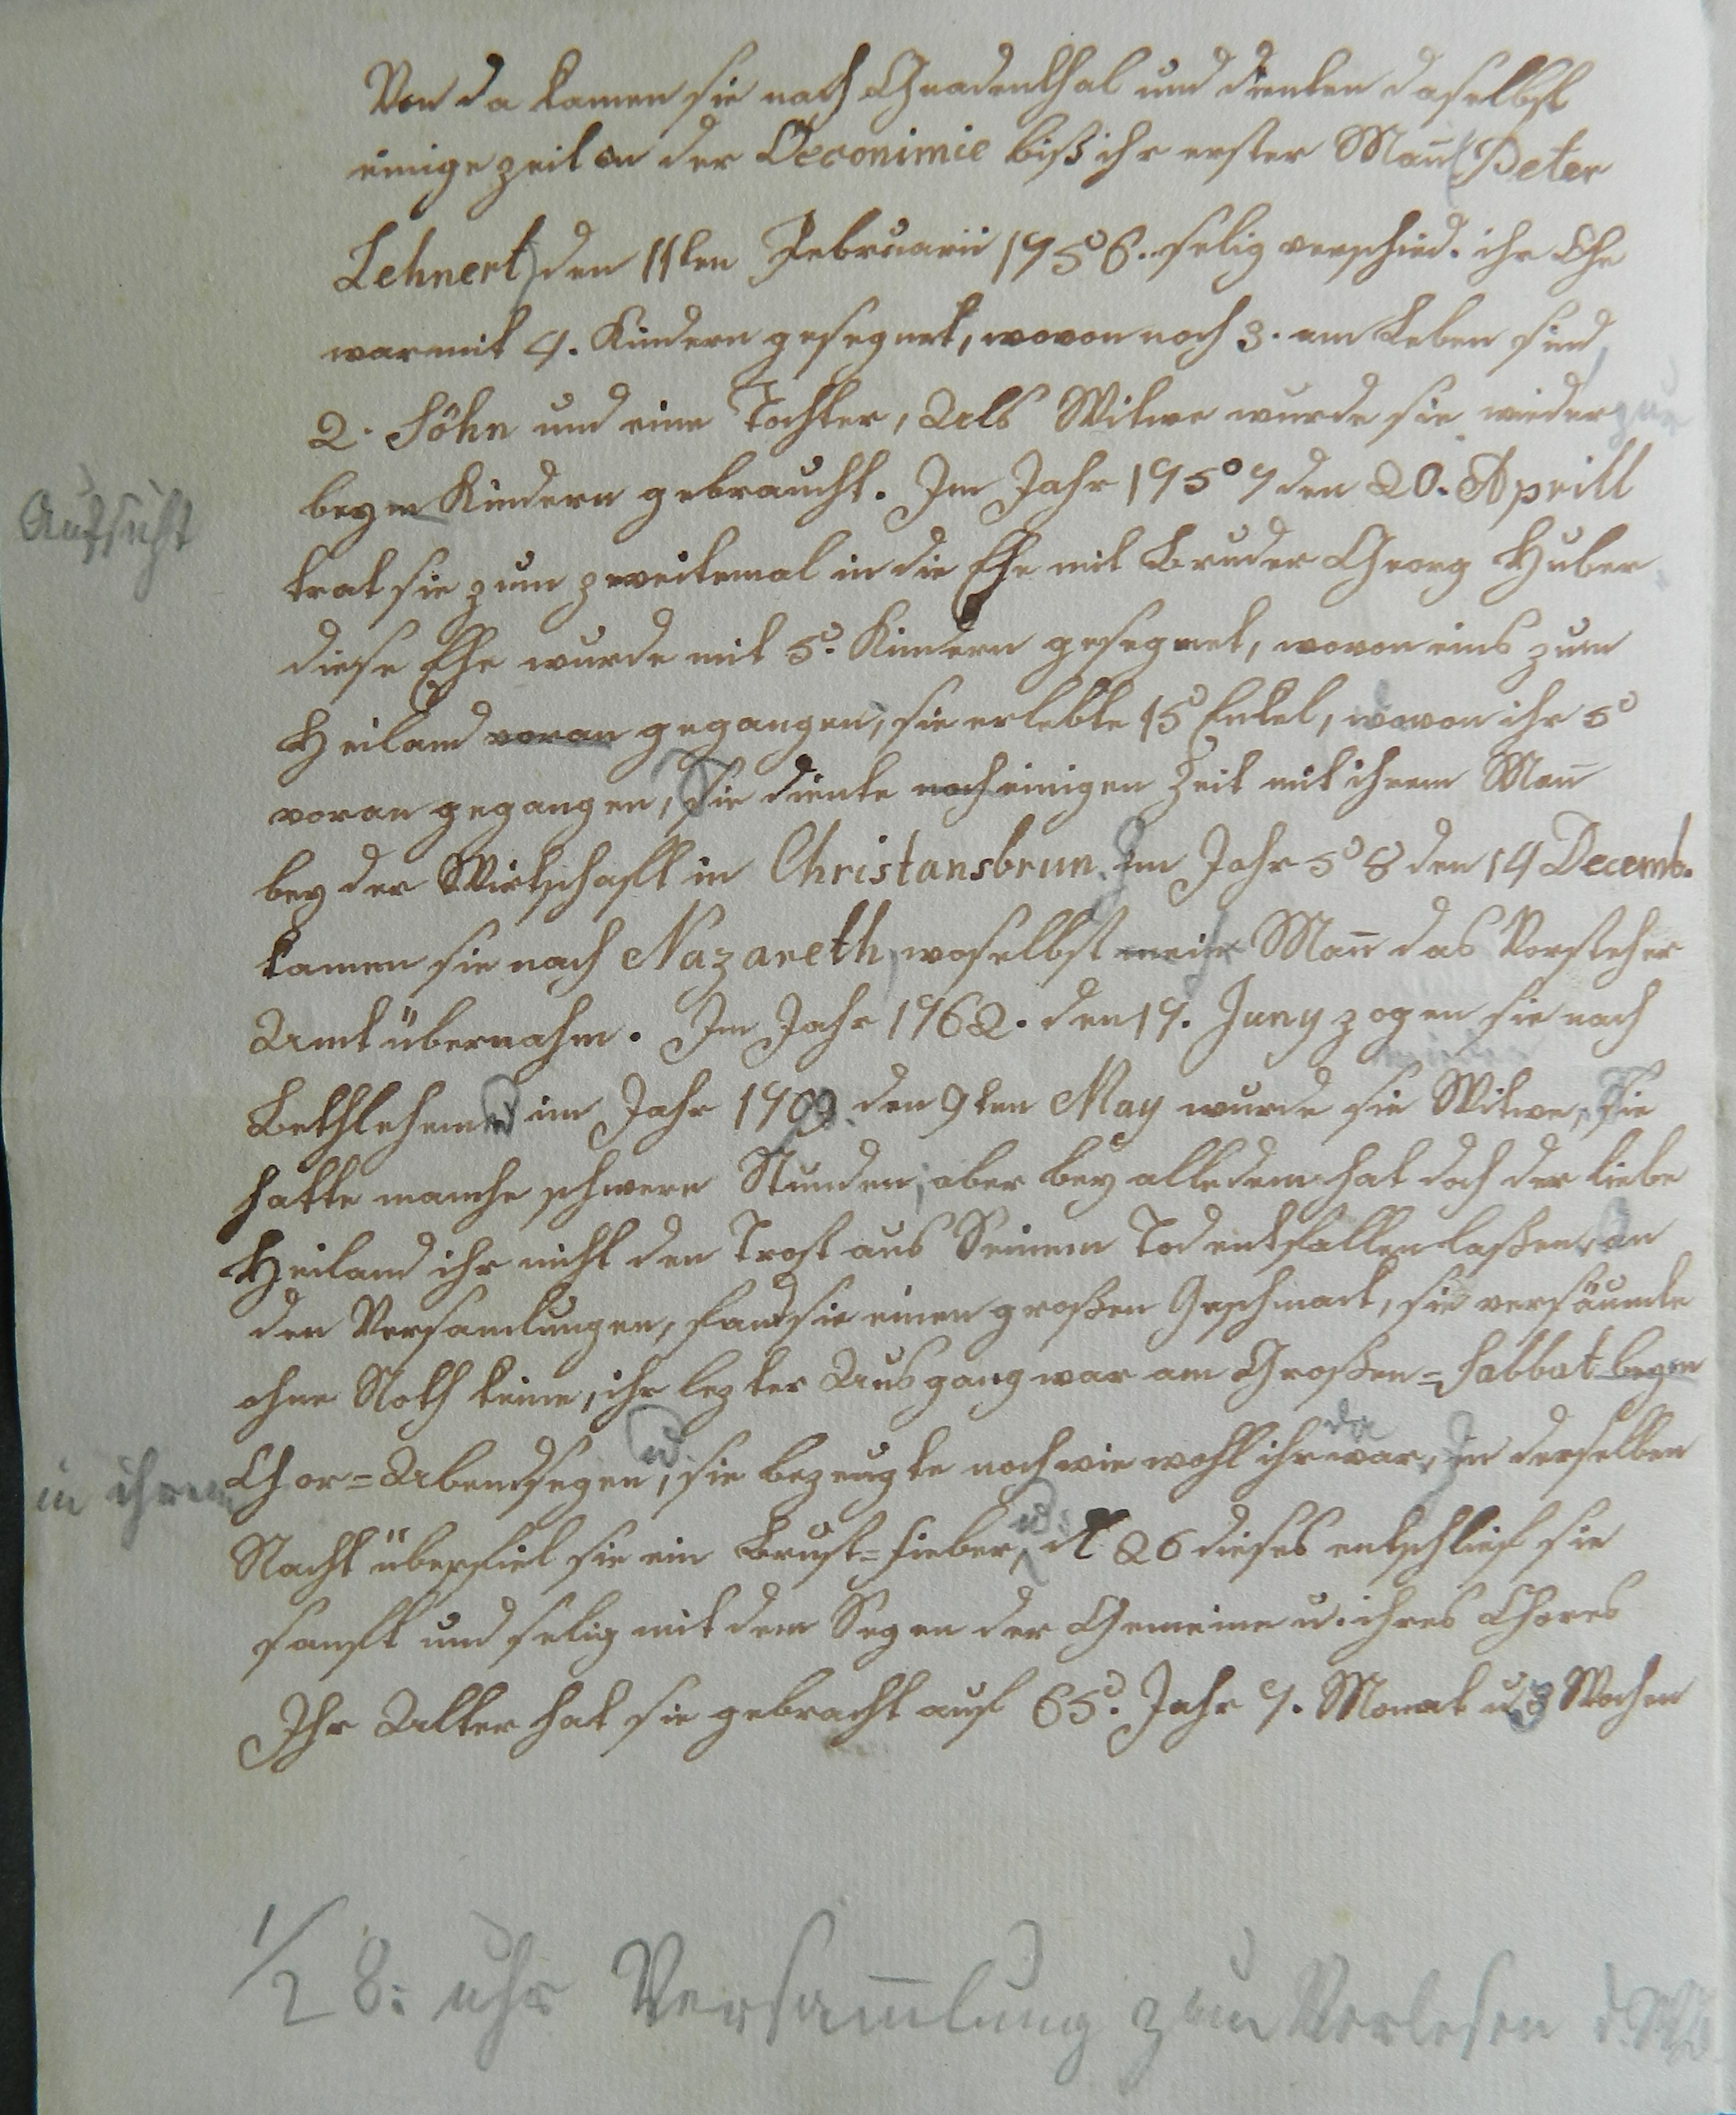 Von da kamen sie nach Gnadenthal und dienten daselbst
einige zeil in der Oeconimie biß ihr erster Mañ (Peter
Lehnert) den 11ten Februarii 1756. selig verschied. ihr Ehe
war mit 4. Kindern gesegnet, wovon noch 3. am Leben sind,
2. Söhn und eine Tochter, Als Witwe wurde sie wieder zur
Aufsicht
beym Kindern gebraucht. Im Jahr 1757 den 20. Aprill
trat sie zum zweitemal in die Ehe mit Bruder Georg Huber
diese Ehe wurde mit 5. Kindern gesegnet, wovon eins zum
Heiland voran gegangen, sie erlebte 15 Enkel, wovon ihr 5
voran gegangen, Sie diente noch einigen Zeit mit ihrem Mañ
bey der Wirtschafft in Christansbrun. Im Jahr 58 den 14 Decemb.
kamen sie nach Nazareth, woselbst ihr Mañ das Vorsteher
Amt übernahm. Im Jahr 1762. den 17. Juny zogen sie nach
Bethlehem u im Jahr den 9ten May wurde sie Witwe, Sie
hatte manche schwere Stunden, aber bey alledem hat doch der liebe
Heiland ihr nicht den Trost aus Seinem Tod entfallen laßen, an
den Versamlungen, fand sie einen großen Geschmack, sie versäumte
ohne Noth keine, ihr lezter Ausgang war am Großen=Sabbat beym
in ihrem
Chor=Abendsegen, u. sie bezeugte noch wie wohl ihr da war, In derselben
Nacht überfiel sie ein Brust=fieber, u: d 26 dieses entschlief sie
sanft und selig mit dem Segen der Gemeine u. ihres Chores
Ihr Alter hat sie gebracht auf 65. Jahr 7. Monat u 3 Wochen
1/2 8: uhr Versam̄lung zum Verlesen